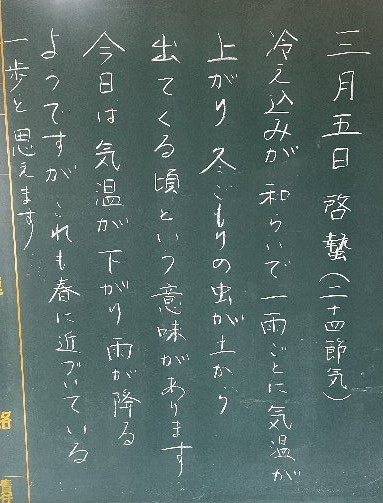 三月五日 啓蟄(二十四節気)
冷え込みが和らいで一雨ごとに気温が
上がり 冬ごもりの虫が土から
出てくる頃という意味があります
今日は気温が下がり雨が降る
ようですがこれも春に近づいている
一歩と思えます